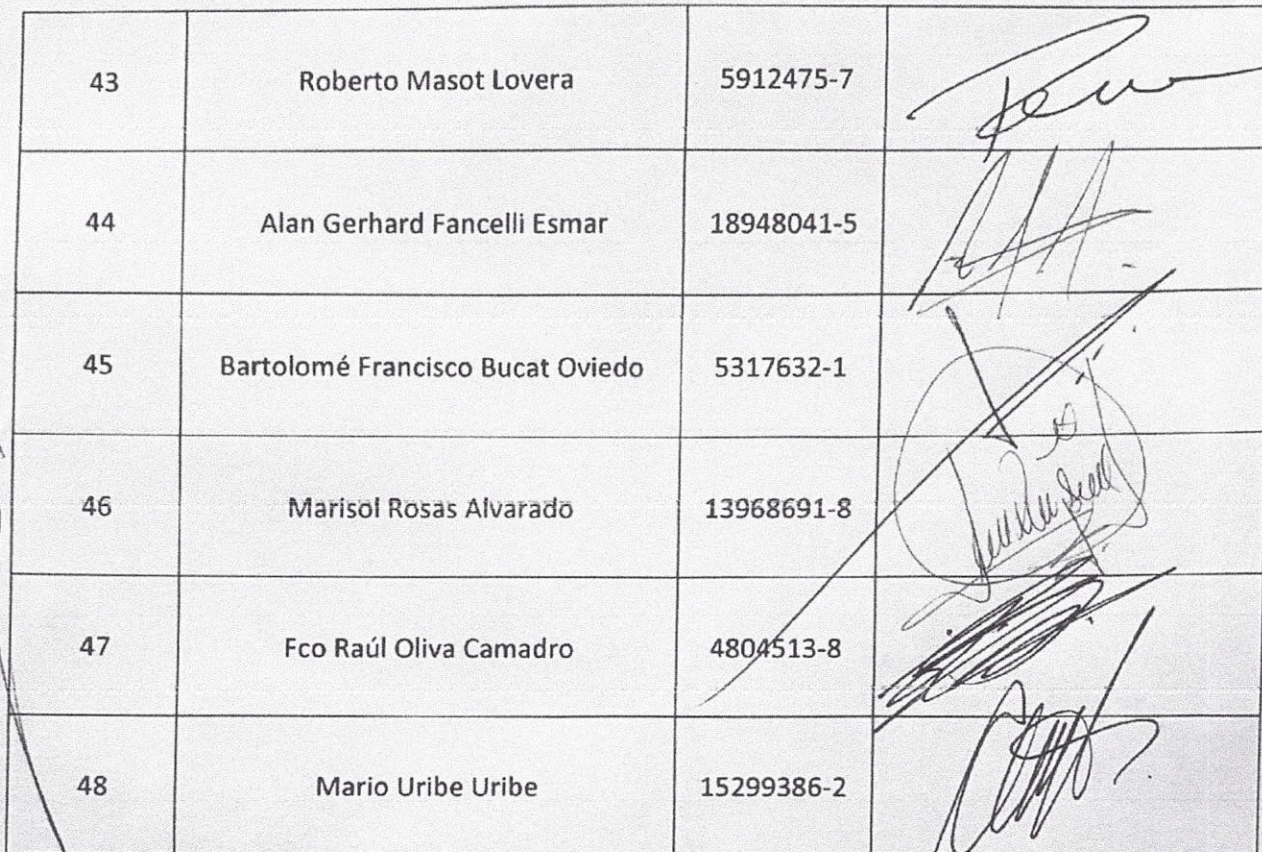 43 Roberto Masot Lovera 5912475-7
44 Alan Gerhard Fancelli Esmar 18948041-5
45 Bartolomé Francisco Bucat Oviedo 5317632-1
46 Marisol Rosas Alvarado 13968691-8
47 Fco Raúl Oliva Camadro 4804513-8
48 Mario Uribe Uribe 15299386-2